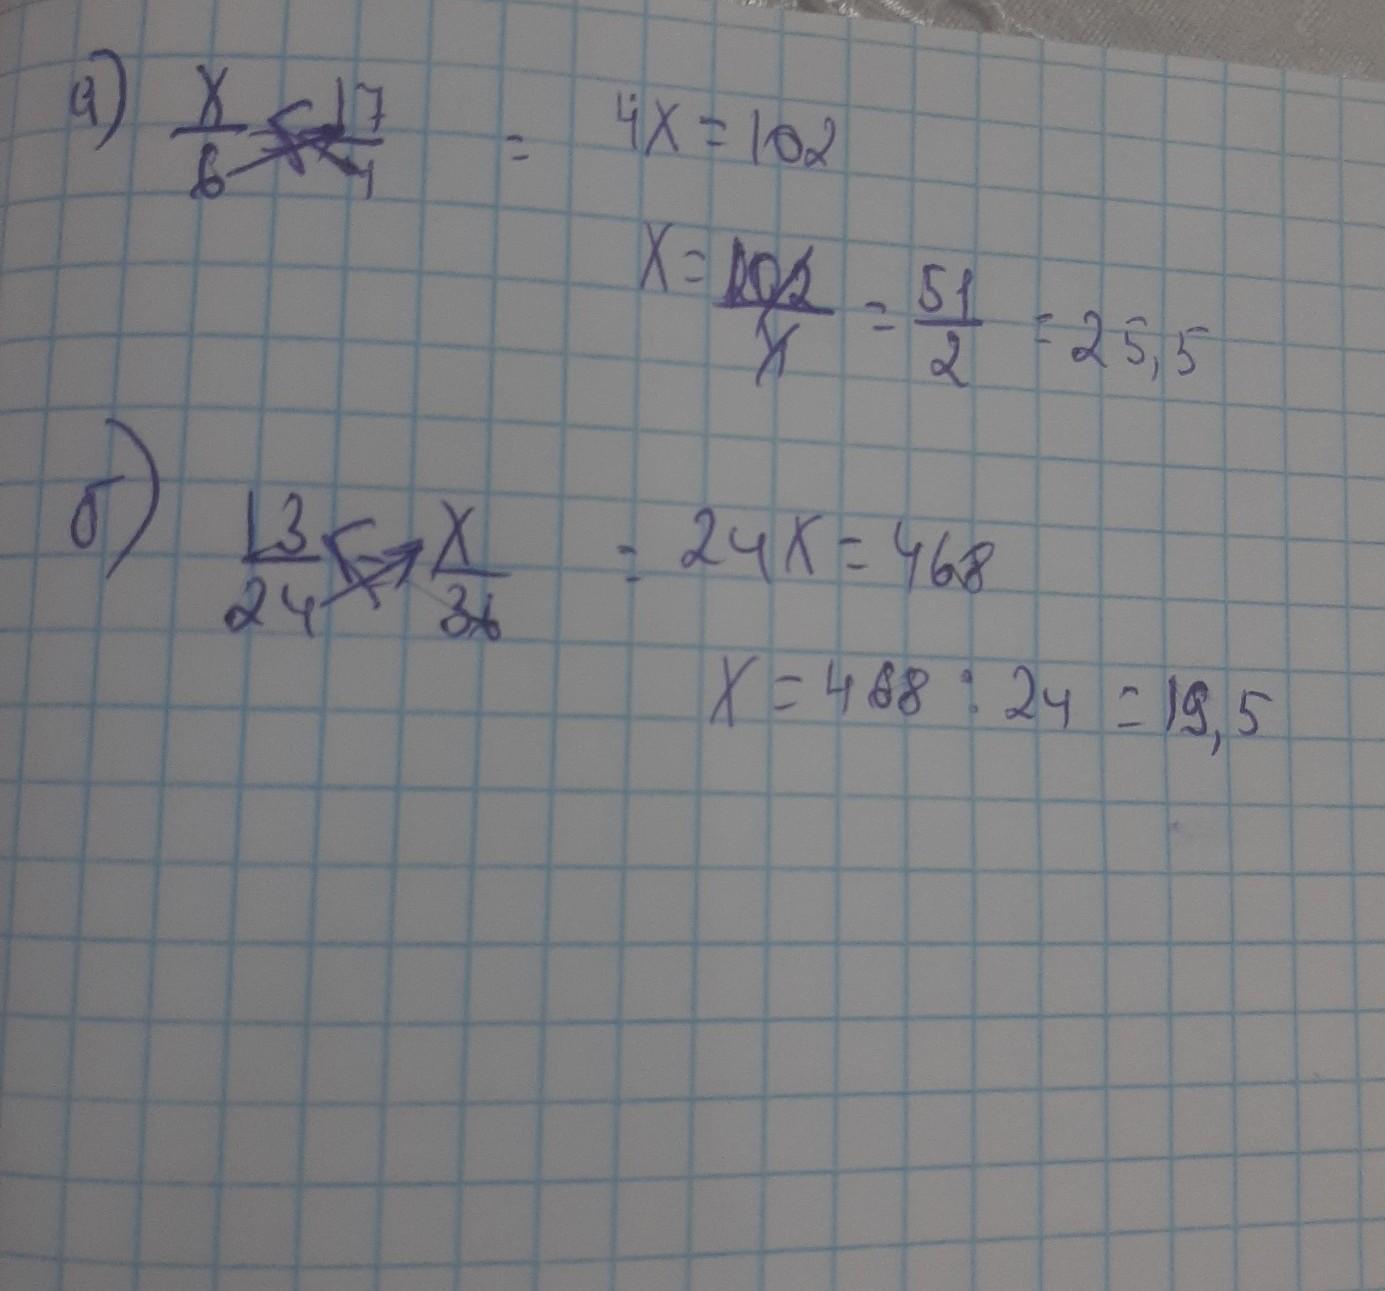 а) x/6 = 17/4 = 4x = 102
x = 102/4 = 51/2 = 25,5
б) 13/24 = x/36 = 24x = 468
x = 468 : 24 = 19,5